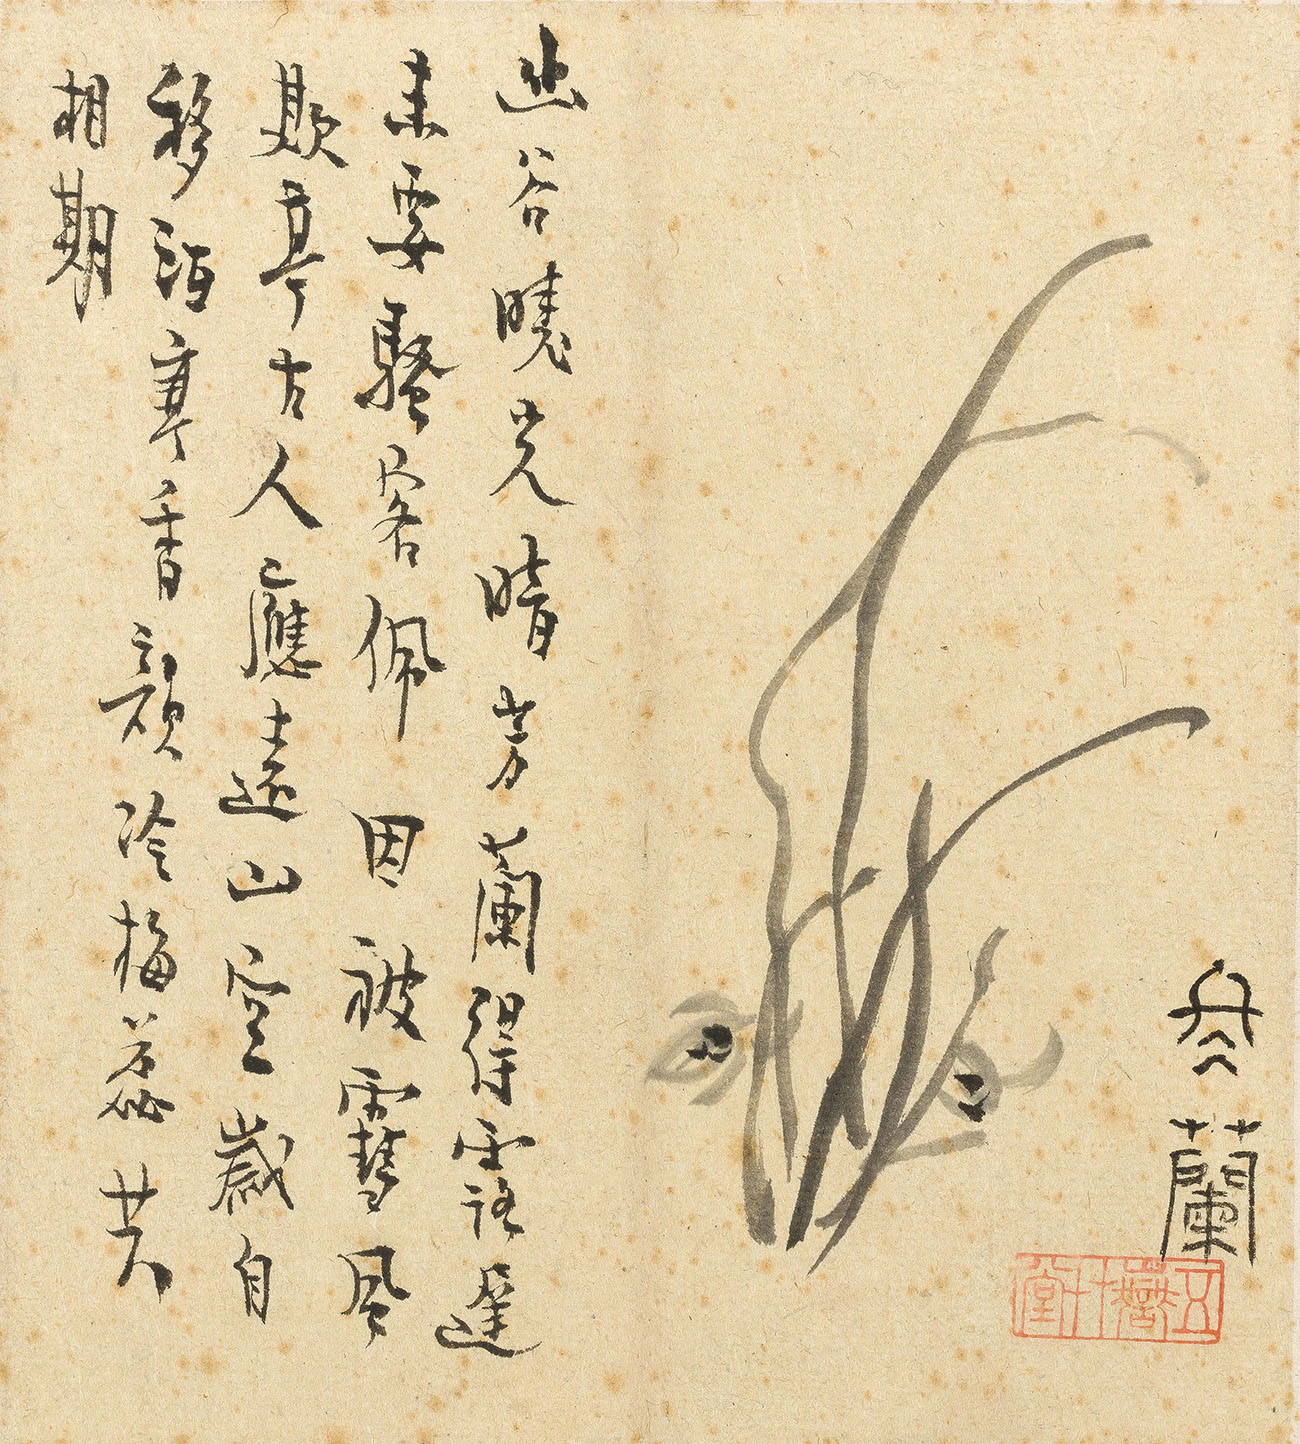 冬蘭
幽谷曉光晴芳蘭得露遲
未要騷客佩因被雪風
欺亭古人應遠山空歲自
移寒香冷梅蕊共
相期